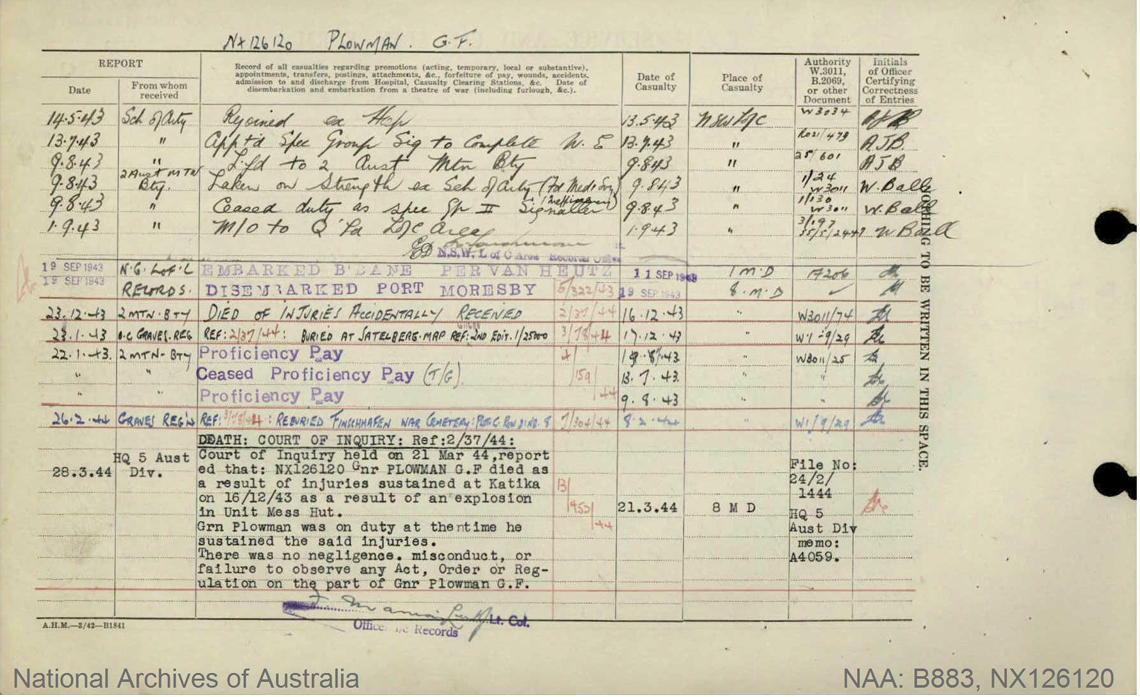 NX126120 PLOWMAN. G.F.
REPORT
Date
From whom received
Record of all casualties regarding promotions (acting, temporary, local or substantive),
appointments, transfers, postings, attachments, &c., forfeiture of pay, wounds, accidents,
admission to and discharge from Hospital, Casualty Clearing Stations, &c. Date of
disembarkation and embarkation from a theatre of war (including furlough, &c.).
Date of Casualty
Place of Casualty
Authority W.3011, B.2069, or other Document
Initials of Officer Certifying Correctness of Entries
14.5.43 Sch of Arty Rejoined ex Hsp 13.5.43 NSW LofC W3034
13.7.43 " App't'd Spec Group Sig to Complete W.E 13.7.43 " AJB
9.8.43 " T'f'd to 2 Aust Mtn Bty 9.8.43 " 25/601 AJB
9.8.43 2 Aust MTN Bty. Taken on Strength ex Sch of Arty 9.8.43 " 1/24 W3011 W. Ball
9.8.43 " Ceased duty as spec Gp II Signaller 9.8.43 " 1/130 W3011 W. Ball
1.9.43 " M/O to Q'ld LofC Area 1.9.43 " W Ball
N.S.W. L of C Area Records Office
19 SEP 1943 N.G. LofL EMBARKED B'BANE PER VAN HEUTZ 11 SEP 1943 1 M.D 17206
19 SEP 1943 RECORDS. DISEMBARKED PORT MORESBY 5/322/43 19 SEP 1943 8.M.D ✓
23.12.43 2 MTN. BTY DIED OF INJURIES ACCIDENTALLY RECEIVED 2/37/44 16.12.43 " W3011/74
23.1.43 O.C GRAVES. REG REF: 2/37/44: BURIED AT SATELBERG. MAP REF: 2ND EDIT. 1/25000 3/78/44 17.12.43 " W1-9/29
22.1.43. 2 MTN-BTY Proficiency Pay 19.8.43 " W3011/25
" " Ceased Proficiency Pay (T/G) 159 13.7.43. " "
" " Proficiency Pay 44 9.8.43 " "
26.2.44 GRAVES REG'N REF: 3/78/44: REBURIED FINSCHHAFEN WAR CEMETERY: PLOT C. ROW D. NO. 8 7/304/44 8.2.44 " W1/9/29
DEATH: COURT OF INQUIRY: Ref:2/37/44:
28.3.44 HQ 5 Aust Div. Court of Inquiry held on 21 Mar 44,report
ed that: NX126120 Gnr PLOWMAN G.F died as
a result of injuries sustained at Katika
on 16/12/43 as a result of an explosion
in Unit Mess Hut.
Grn Plowman was on duty at thentime he
sustained the said injuries.
There was no negligence. misconduct, or
failure to observe any Act, Order or Reg-
ulation on the part of Gnr Plowman G.F.
13/
1953/
44
21.3.44 8 M D
File No:
24/2/
1444
HQ 5
Aust Div
memo:
A4059.
Lt. Col.
Officer i/c Records
NOTHING TO BE WRITTEN IN THIS SPACE.
A.H.M.—3/42—B1841
National Archives of Australia
NAA: B883, NX126120